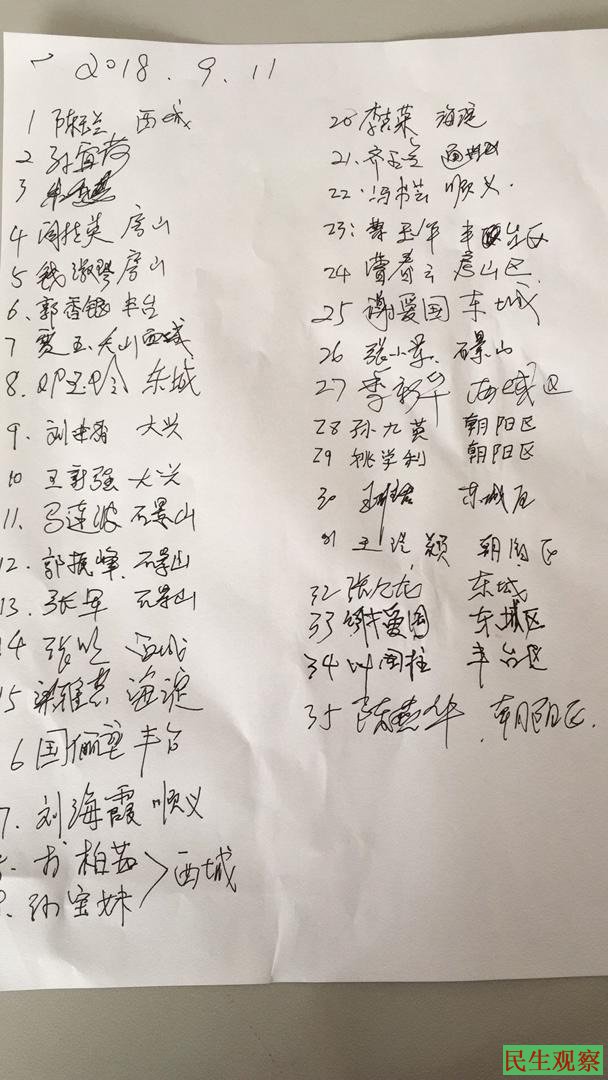 2018.9.11
1 陈玉兰 西城
2 孙宜荷
3
4 周桂英 房山
5 钱淑琴 房山
6. 郭香银 丰台
7 贾玉 西城
8. 邓玉玲 东城
9. 刘忠香 大兴
10 王新强 大兴
11. 马连波 石景山
12. 郭振峰 石景山
13. 张军 石景山
14 张 西城
15 梁雅君 海淀
6 国俪 丰台
7. 刘海霞 顺义
方柏茹
孙宝妹
西城
20 李志荣 海淀
21. 齐 通州区
22. 冯书兰 顺义
23: 曹玉军 丰 台区
24 费春云 房山区
25 谢爱国 东城
26 张小景 石景山
27 李新华 西城区
28 孙九英 朝阳区
29 姚学利 朝阳区
30 王 东城区
31 王 颖 朝阳区
32 张久龙 东城
33 谢爱国 东城区
34 叶国柱 丰台区
35 陈燕华 朝阳区
民生观察